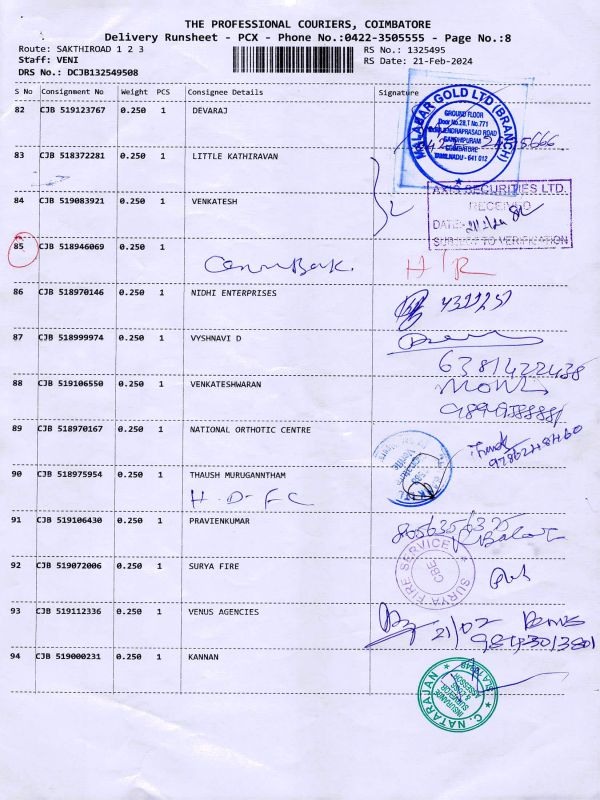 THE PROFESSIONAL COURIERS, COIMBATORE
Delivery Runsheet - PCX - Phone No.:0422-3505555 - Page No.:8
Route: SAKTHIROAD 1 2 3
RS No.: 1325495
Staff: VENI
RS Date: 21-Feb-2024
DRS No.: DCJB132549508
S No Consignment No Weight PCS Consignee Details Signature
82 CJB 519123767 0.250 1 DEVARAJ
MALABAR GOLD LTD (BRANCH)
GROUND FLOOR
Door No.28,T No.771
GANDHIPURAM
COIMBATORE
TAMILNADU - 641 012
83 CJB 518372281 0.250 1 LITTLE KATHIRAVAN
84 CJB 519083921 0.250 1 VENKATESH
AXIS SECURITIES LTD.
RECEIVED
DATE:
SUBJECT TO VERIFICATION
85 CJB 518946069 0.250 1
H/R
86 CJB 518970146 0.250 1 NIDHI ENTERPRISES
87 CJB 518999974 0.250 1 VYSHNAVI D
6381422438
88 CJB 519106550 0.250 1 VENKATESHWARAN
89 CJB 518970167 0.250 1 NATIONAL ORTHOTIC CENTRE
90 CJB 518975954 0.250 1 THAUSH MURUGANNTHAM
H.D-F C
91 CJB 519106430 0.250 1 PRAVIENKUMAR
92 CJB 519072006 0.250 1 SURYA FIRE
SURYA FIRE SERVICE
CBE
93 CJB 519112336 0.250 1 VENUS AGENCIES
21/02
9843013801
94 CJB 519000231 0.250 1 KANNAN
C. NATARAJAN
INSURANCE
SURVEYOR